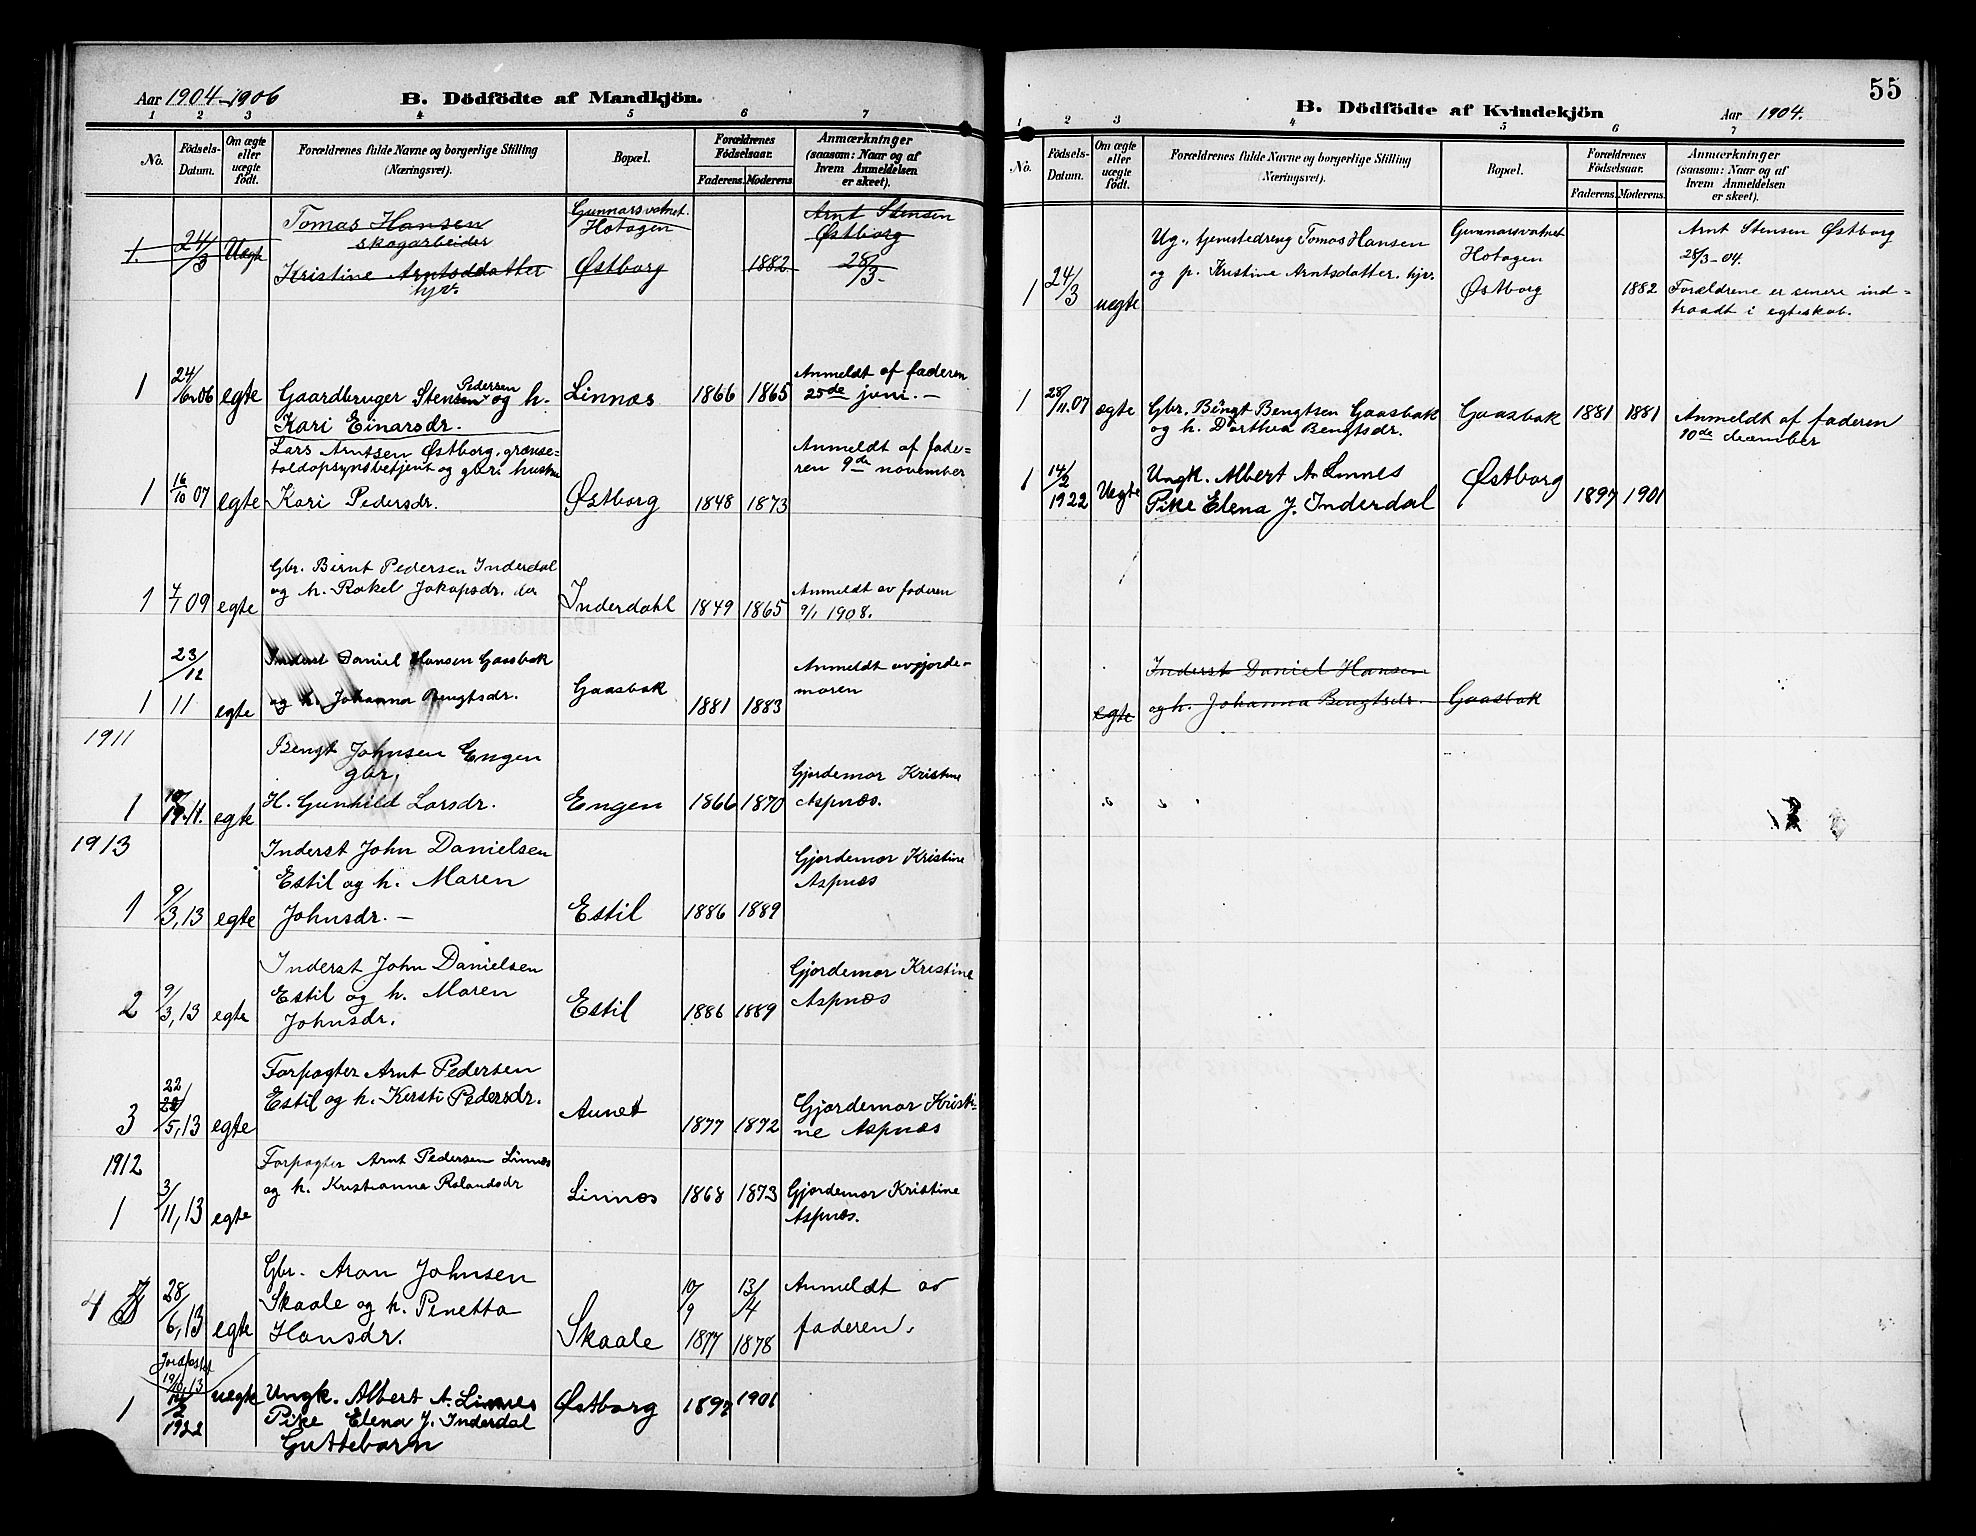 Aar 1904-1906 B. Dödfödte af Mandkjön.
1 2 3 4 5 6 7
No. Födsels-Datum. Om ægte eller uægte födt. Forældrenes fulde Navne og borgerlige Stilling (Næringsvei). Bopæl. Forældrenes Födselsaar. Faderens. Moderens. Anmærkninger (saasom: Naar og af hvem Anmeldelsen er skeet).
Tomas Hansen Gunnarsvatnet. Arnt Stensen
skogarbeider Hotagen Østborg
1. 24/3 Uægte Kristine Arntsdatter Østborg 1882 28/3-
hjv.
1 24/6 06 egte Gaardbruger Stensen Pedersen og h. Linnæs 1866 1865 Anmeldt af faderen
25de juni. -
Kari Einarsdr.
Lars Arntsen Østborg, grænse- Anmeldt af fade-
toldopsynsbetjent og hustru ren 9de november
1 16/10 07 egte Kari Pedersdr. Østborg 1848 1873
Gbr. Birnt Pedersen Inderdal
1 4/1 09 egte og h. Rakel Jakopsdr. Inderdahl 1849 1865 Anmeldt av faderen
9/1 1908.
23/12 Inderst Daniel Hansen Gaasbak Anmeldt av gjorde-
1 11 egte og h. Johanna Bengtsdr. Gaasbak 1881 1883 moren
1911
Bengt Johnsen Engen
gbr. Gjordemor Kristine
1 11. egte H. Gunhild Larsdr. Engen 1866 1870 Aspnæs.
1913
Inderst John Danielsen Gjordemor Kristine
Estil og h. Maren Aspnæs
1 9/3, 13 egte Johnsdr. - Estil 1886 1889
Inderst John Danielsen Gjordemor Kristine
2 9/3, 13 egte Estil og h. Maren Estil 1886 1889 Aspnæs
Johnsdr.
Forpagter Arnt Pedersen
Estil og h. Kersti Pedersdr.
3 22/5, 13 egte Aunet 1877 1872 Gjordemor Kristi-
ne Aspnæs
1912
Forpagter Arnt Pedersen Linnæs
og h. Kristianna Rolandsdr
1 3/11, 13 egte Linnæs 1868 1873 Gjordemor Kristine
Aspnæs.
Gbr. Aron Johnsen 10/9 13/4 Anmeldt av
4 28/6, 13 egte Skaale og h. Pinetta Skaale 1877 1878 faderen.
Hansdr.
Jordfæstet
19/10, 13
1 14/2 1922 uegte Ungk. Albert A. Linnes Østborg 1897 1901
Pike Elena J. Inderdal
Guttebarn
55
B. Dödfödte af Kvindekjön Aar 1904.
1 2 3 4 5 6 7
No. Födsels-Datum. Om ægte eller uægte födt. Forældrenes fulde Navne og borgerlige Stilling (Næringsvei). Bopæl. Forældrenes Födselsaar. Faderens. Moderens. Anmærkninger (saasom: Naar og af hvem Anmeldelsen er skeet).
Ug., tjenestedreng Tomas Hansen Gunnarsvatnet Arnt Stensen Østborg
Hotagen 28/3-04.
1 24/3 uegte og p. Kristine Arntsdatter. hjv. Østborg 1882 Forældrene er senere ind-
traadt i egteskab.
1 28/11.07 ægte Gbr. Bingt Bengtsen Gaasbak Gaasbak 1881 1881 Anmeldt af faderen
og h. Dorthea Bengtsdr. 10de december
1 14/2 1922 Uegte Ungk. Albert A. Linnes Østborg 1897 1901
Pike Elena J. Inderdal
Inderst Daniel Hansen
egte og h. Johanna Bengtsdr. Gaasbak